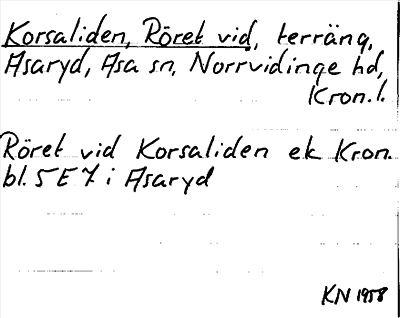 Korsaliden, Röret vid, terräng,
Asaryd, Asa sn, Norrvidinge hd,
Kron. l.
Röret vid Korsaliden ek Kron.
bl. 5 E 7 i Asaryd
KN 1958